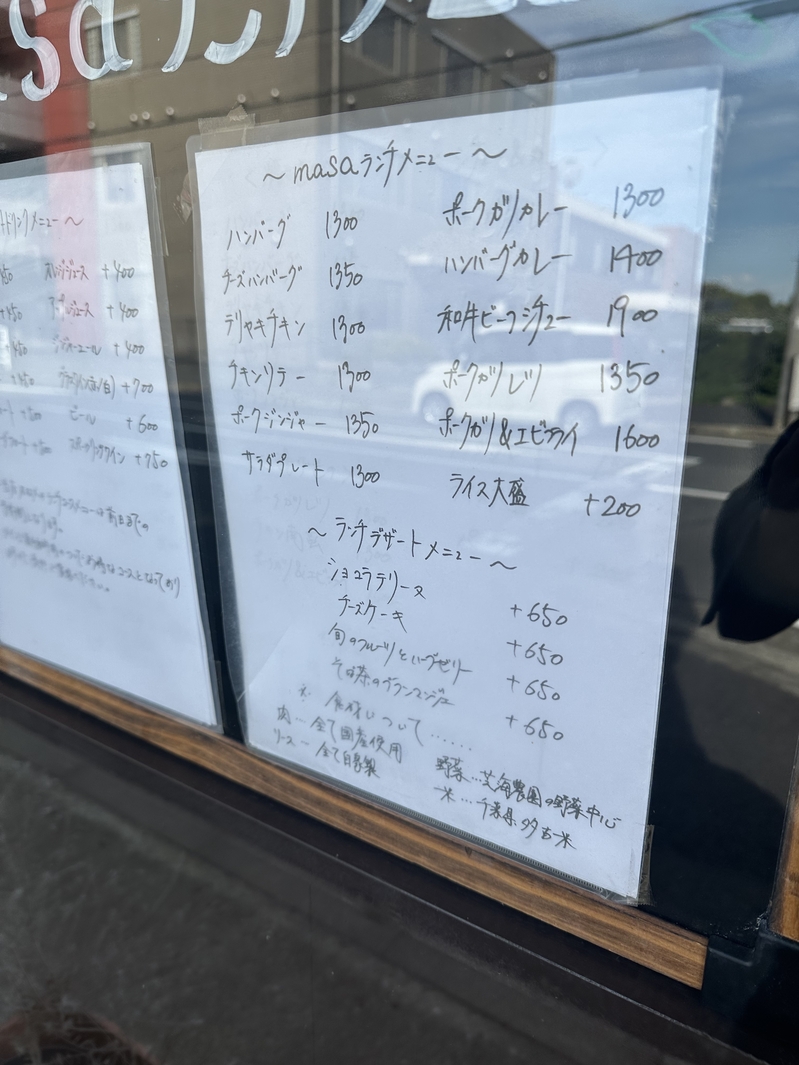 masaランチ
〜 masaランチメニュー 〜
ハンバーグ 1300
チーズハンバーグ 1350
テリヤキチキン 1300
チキンソテー 1300
ポークジンジャー 1350
サラダプレート 1300
ポークカツカレー 1300
ハンバーグカレー 1400
和牛ビーフシチュー 1900
ポークカツレツ 1350
ポークカツ&エビフライ 1600
ライス大盛 +200
〜 ランチデザートメニュー 〜
ショコラテリーヌ +650
チーズケーキ +650
旬のフルーツとハーブゼリー +650
そば茶のブランマンジェ +650
※ 食材について……
肉…全て国産使用
ソース…全て自家製
野菜…農園の野菜中心
米…千葉県多古米
ドリンクメニュー 〜
オレンジジュース +400
アップルジュース +400
ジンジャーエール +400
グラスワイン(赤/白) +700
ビール +600
スパークリングワイン +750